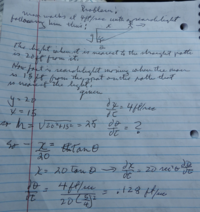 Problem:
man walks at 4 ft/sec
searchlight
following him
The light when it is nearest to the straight path
is 20 ft from it
How fast is searchlight moving when the man
is 15 ft from the spot on the path that
is nearest the light?
given
y = 20
x = 15
dx/dt = 4 ft/sec
h = √20²+15² = 25 dθ/dt = ?
x/20 = tan θ
x = 20 tan θ → dx/dt = 20 sec² θ dθ/dt
dθ/dt = 4 ft/sec / 20 = .128 ft/sec